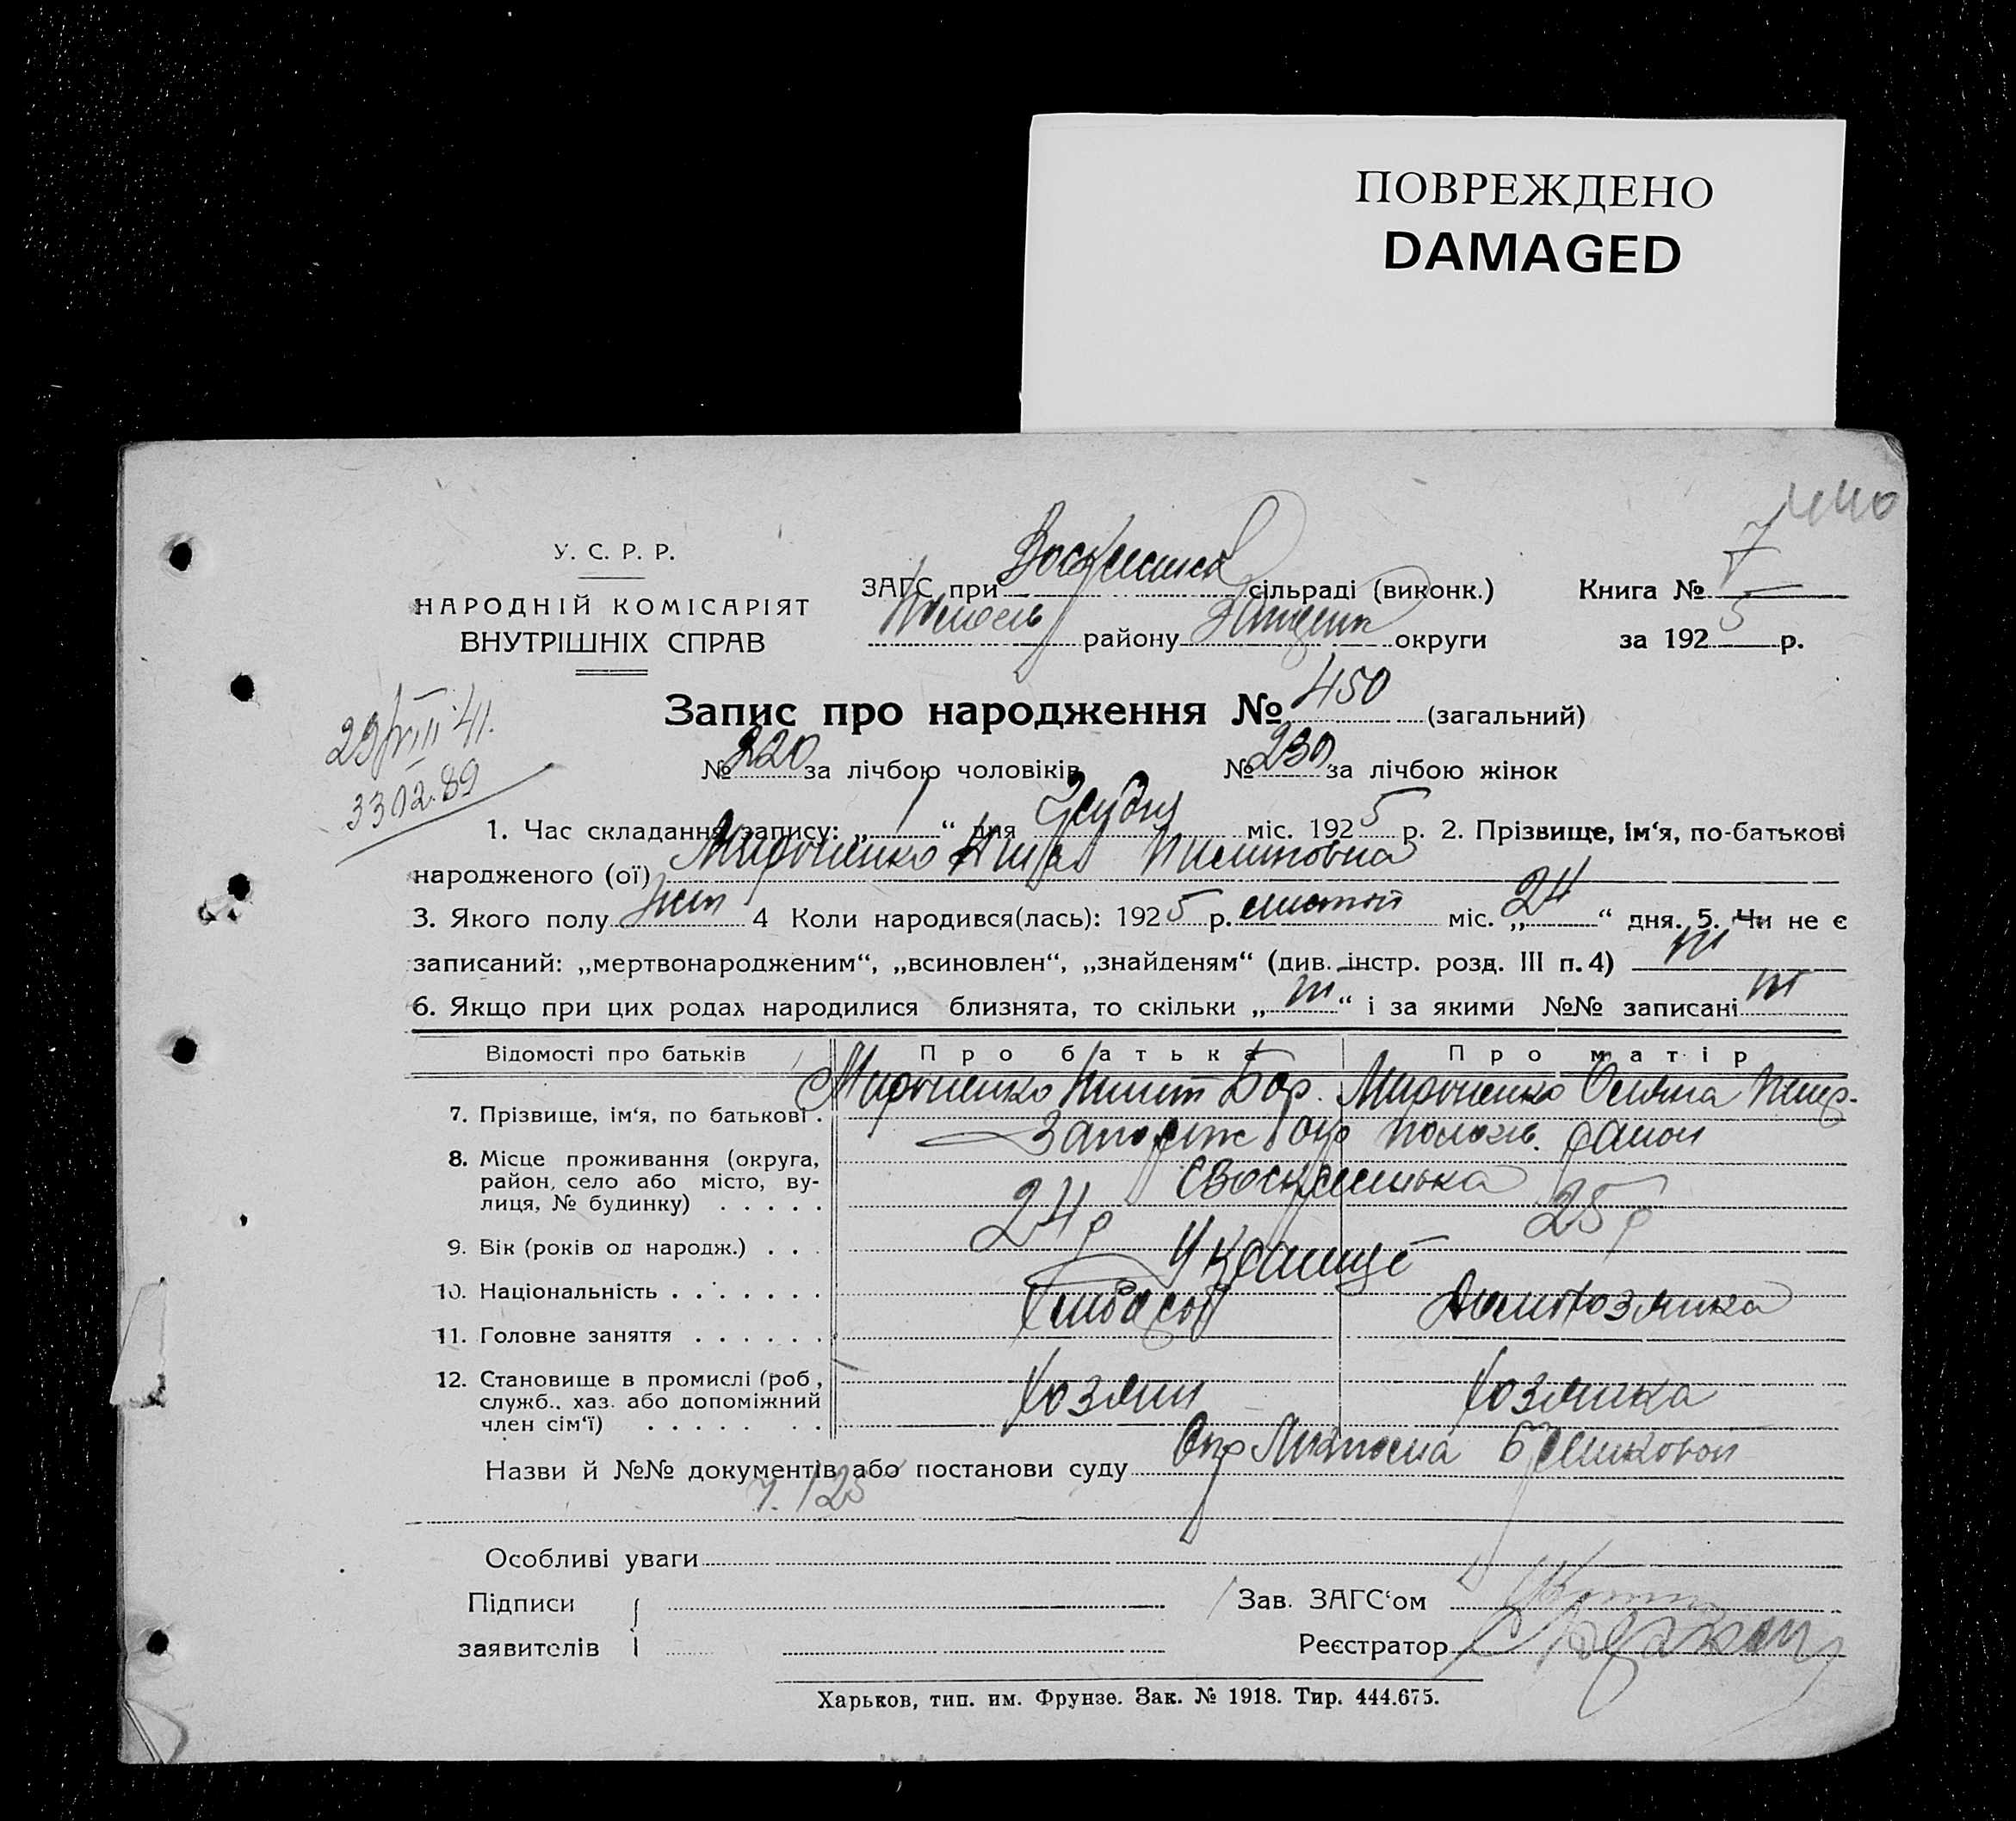 ПОВРЕЖДЕНО
DAMAGED
У. С. Р. Р.
НАРОДНІЙ КОМІСАРІЯТ
ВНУТРІШНІХ СПРАВ
ЗАГС при сільраді (виконк.)
району округи
Книга № 7
за 1925 р.
Запис про народження № 450 (загальний)
29/VIII 41.
3302.89
№ 220 за лічбою чоловіків № 230 за лічбою жінок
1. Час складання запису: „1“ дня Грудня міс. 1925 р. 2. Прізвище, ім‘я, по-батькові
народженого (ої) Мироненко
3. Якого полу жін 4 Коли народився(лась): 1925 р. листоп міс. „24“ дня. 5. Чи не є
записаний: „мертвонародженим“, „всиновлен“, „знайденям“ (див. інстр. розд. III п. 4) ні
6. Якщо при цих родах народилися близнята, то скільки „ні“ і за якими №№ записані ні
Відомості про батьків Про батька Про матір
7. Прізвище, ім‘я, по батькові . Мироненко Мироненко
8. Місце проживання (округа, Запоріж окр район
район, село або місто, ву-
лиця, № будинку) . . . . .
9. Вік (років од народж.) . . . 24 р 25 р
10. Національність . . . . . . . Українці
11. Головне заняття . . . . . . Хлібороб Домохозяйка
12. Становище в промислі (роб., Хозяин Хозяйка
служб., хаз. або допоміжний
член сім‘ї) . . . . . . .
Назви й №№ документів або постанови суду
Особливі уваги
Підписи
заявителів
Зав. ЗАГС‘ом
Реєстратор
Харьков, тип. им. Фрунзе. Зак. № 1918. Тир. 444.675.